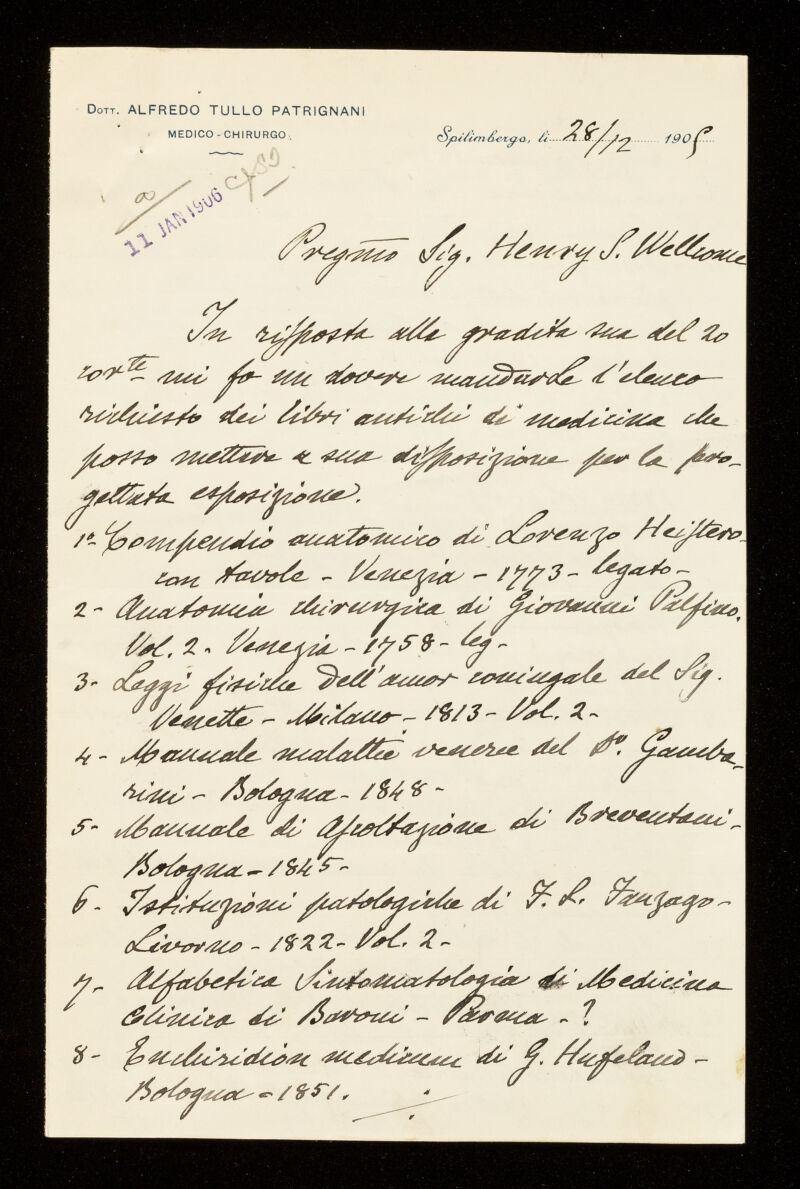 Dott. ALFREDO TULLO PATRIGNANI
MEDICO-CHIRURGO.
Spilimbergo, li 28/12 1905
11 JAN 1906
Pregmo Sig. Henry S. Wellcome
In risposta alla gradita sua del 20
corte mi fo un dovere mandarLe l'elenco
richiesto dei libri antichi di medicina che
posso mettere a sua disposizione per la pro-
gettata esposizione.
1º- Compendio anatomico di Lorenzo Heistero-
con tavole - Venezia - 1773 - legato -
2 - Anatomia chirurgica di Giovanni Palfino.
Vol. 2 - Venezia - 1758 - leg -
3 - Leggi fisiche dell'amor coniugale del Sig.
Venette - Milano - 1813 - Vol. 2 -
4 - Manuale malattie veneree del Dr. Gamba-
rini - Bologna - 1848 -
5 - Manuale di Ascoltazione di Breventani -
Bologna - 1845 -
6 - Istituzioni patologiche di F. L. Fanzago -
Livorno - 1822 - Vol. 2 -
7 - Alfabetica Sintomatologia di Medicina
Clinica di Baroni - Parma - ?
8 - Enchiridion medicum di G. Hufeland -
Bologna - 1851.